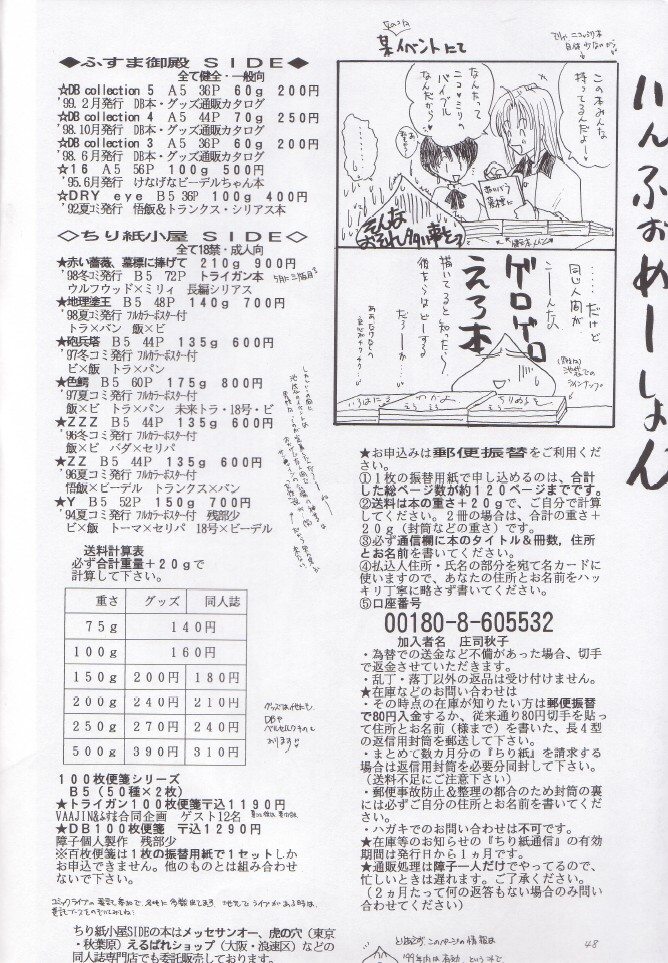 いんふぉめーしょん
某イベントにて
この本みんな
持ってるんだよー
なんたって
バイブル
なんだから
‥‥‥だけど
同じ人間が
こーんなの
ゲロゲロ
えろ本
描いてると知ったら〜
◆ふすま御殿 SIDE◆
全て健全・一般向
☆DB collection 5 A5 36P 60g 200円
'99.2月発行 DB本・グッズ通販カタログ
☆DB collection 4 A5 44P 70g 250円
'98.10月発行 DB本・グッズ通販カタログ
☆DB collection 3 A5 36P 60g 200円
'98.6月発行 DB本・グッズ通販カタログ
☆16 A5 56P 100g 500円
'95.6月発行 けなげなビーデルちゃん本
☆DRY eye B5 36P 100g 400円
'92夏コミ発行 悟飯&トランクス・シリアス本
◇ちり紙小屋 SIDE◇
全て18禁・成人向
★赤い薔薇、墓標に捧げて 210g 900円
'98冬コミ発行 B5 72P トライガン本
ウルフウッド×ミリィ 長編シリアス
★地理塗王 B5 48P 140g 700円
'98夏コミ発行 フルカラーポスター付
トラ×パン 飯×ビ
★砲兵塔 B5 44P 135g 600円
'97冬コミ発行 フルカラーポスター付
ビ×飯 トラ×パン
★色鰐 B5 60P 175g 800円
'97夏コミ発行 フルカラーポスター付
飯×ビ トラ×パン 未来トラ・18号・ビ
★ZZZ B5 44P 135g 600円
'96冬コミ発行 フルカラーポスター付
飯×ビ バグ×セリパ
★ZZ B5 44P 135g 600円
'96夏コミ発行 フルカラーポスター付
悟飯×ビーデル トランクス×パン
★Y B5 52P 150g 700円
'94夏コミ発行 フルカラーポスター付 残部少
ビ×飯 トーマ×セリパ 18号×ビーデル
送料計算表
必ず合計重量+20gで
計算して下さい。
重さ グッズ 同人誌
75g 140円
100g 160円
150g 200円 180円
200g 240円 210円
250g 270円 240円
500g 390円 310円
100枚便箋シリーズ
B5(50種×2枚)
★トライガン100枚便箋〒込1190円
VAAJIN&ふすま合同企画 ゲスト12名
★DB100枚便箋 〒込1290円
障子個人製作 残部少
※百枚便箋は1枚の振替用紙で1セットしか
お申込できません。他のものとは組み合わせ
ないで下さい。
ちり紙小屋SIDEの本はメッセサンオー、虎の穴(東京
・秋葉原)えるぱれショップ(大阪・浪速区)などの
同人誌専門店でも委託販売しております。
★お申込みは郵便振替をご利用くだ
さい。
①1枚の振替用紙で申し込めるのは、合計
した総ページ数が約120ページまでです。
②送料は本の重さ+20gで、ご自分で計算
してください。2冊の場合は、合計の重さ+
20g(封筒などの重さ)です。
③必ず通信欄に本のタイトル&冊数、住所
とお名前を書いてください。
④払込人住所・氏名の部分を宛て名カードに
使いますので、あなたの住所とお名前をハッ
キリ丁寧に略さず書いてください。
⑤口座番号
00180-8-605532
加入者名 庄司秋子
・為替での送金など不備があった場合、切手
で返金させていただきます。
・乱丁・落丁以外の返品は受け付けません。
★在庫などのお問い合わせは
・その時点の在庫が知りたい方は郵便振替
で80円入金するか、従来通り80円切手を貼っ
て住所とお名前(様まで)を書いた、長4型
の返信用封筒を郵送して下さい。
・まとめて数カ月分の『ちり紙』を請求する
場合は返信用封筒を必要分同封して下さい。
(送料不足にご注意下さい)
・郵便事故防止&整理の都合のため封筒の裏
には必ずご自分の住所とお名前を書いてくだ
さい。
・ハガキでのお問い合わせは不可です。
★在庫等のお知らせの『ちり紙通信』の有効
期間は発行日から1ヵ月です。
★通販処理は障子一人だけでやってるので、
忙しいときは遅れます。ご了承ください。
(2ヵ月たって何の返答もない場合のみ問い
合わせてください)
とりあえずこのページの情報は
48